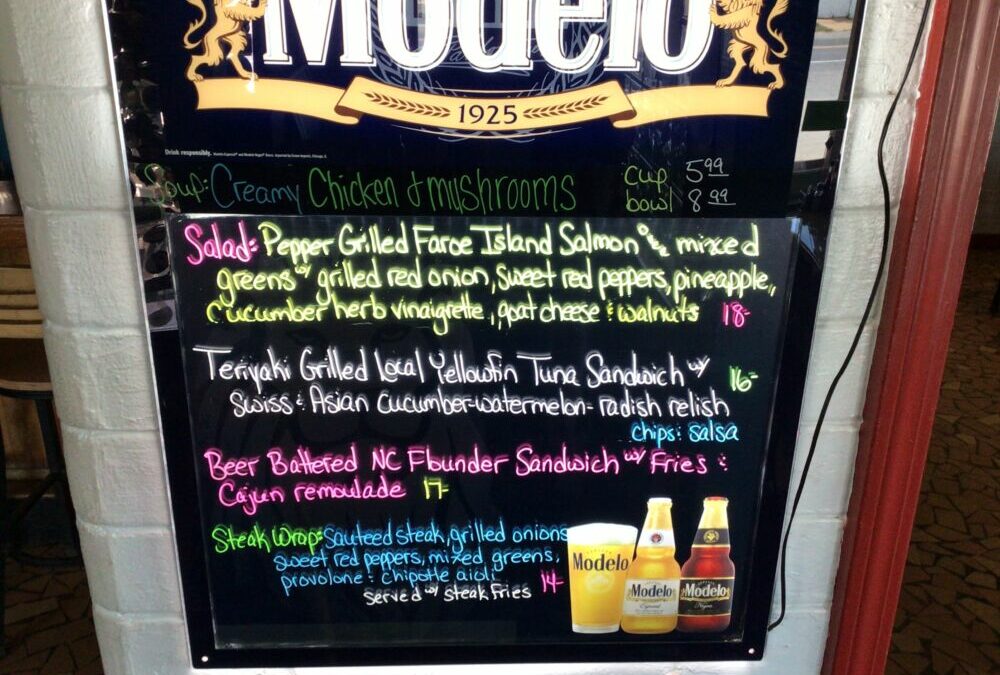 Modelo
1925
Drink responsibly.
Soup: Creamy Chicken & mushrooms
cup 5.99
bowl 8.99
Salad: Pepper Grilled Faroe Island Salmon o/ mixed
greens w/ grilled red onion, sweet red peppers, pineapple,
cucumber herb vinaigrette, goat cheese & walnuts 18-
Teriyaki Grilled Local Yellowfin Tuna Sandwich w/ 16-
Swiss & Asian cucumber-watermelon-radish relish
chips & salsa
Beer Battered NC Flounder Sandwich w/ Fries &
Cajun remoulade 17-
Steak Wrap: Sauteed steak, grilled onions
sweet red peppers, mixed greens,
provolone & chipotle aioli 14-
served w/ steak fries
Modelo
Modelo
Especial
Modelo
Negra